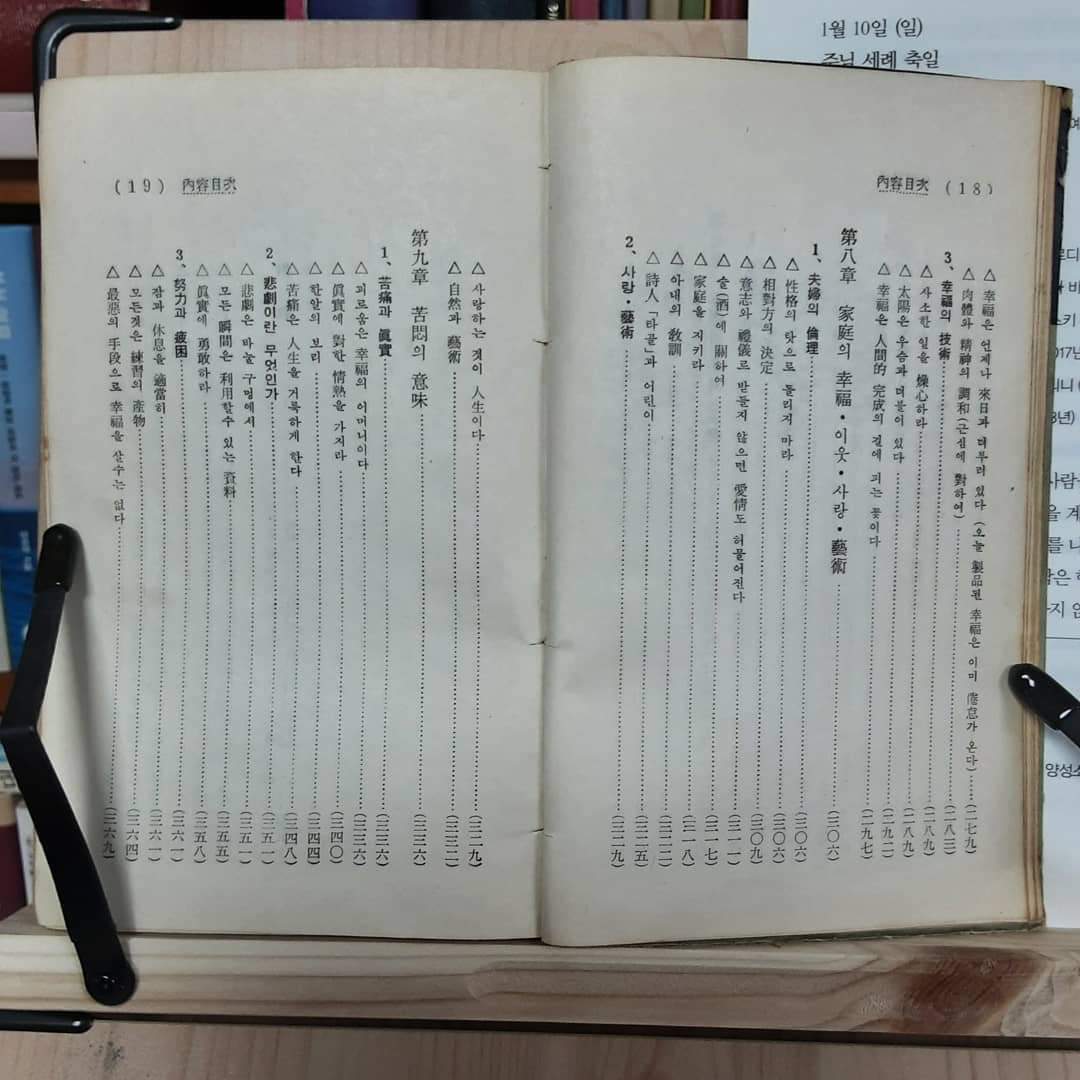 1월 10일 (일)
주님 세례 축일
內容目次 (18)
△ 幸福은 언제나 來日과 더부러 있다 (오늘 製品된 幸福은 이미 倦怠가 온다) (二七九)
△ 肉體와 精神의 調和(근심에 對하여) (二八三)
3、幸福의 技術 (二八九)
△ 사소한 일을 燥心하라 (二八九)
△ 太陽은 우슴과 더불어 있다 (二九二)
△ 幸福은 人間的 完成의 길에 피는 꽃이다 (二九七)
第八章 家庭의 幸福・이웃・사랑・藝術 (三〇六)
1、夫婦의 倫理 (三〇六)
△ 性格의 탓으로 돌리지 마라 (三〇六)
△ 相對方의 決定 (三〇九)
△ 意志와 禮儀로 받들지 않으면 愛情도 허물어진다 (三一一)
△ 술(酒)에 關하여 (三一七)
△ 家庭을 지키라 (三一八)
△ 아내의 敎訓 (三二二)
△ 詩人「타골」과 어린이 (三二五)
2、사랑・藝術 (三二九)
(19) 內容目次
△ 사랑하는 것이 人生이다 (三二九)
△ 自然과 藝術 (三三二)
第九章 苦悶의 意味 (三三六)
1、苦痛과 眞實 (三三六)
△ 괴르움은 幸福의 어머니이다 (三三六)
△ 眞實에 對한 情熱을 가지라 (三四〇)
△ 한알의 보리 (三四四)
△ 苦痛은 人生을 거룩하게 한다 (三四八)
2、悲劇이란 무엇인가 (三五一)
△ 悲劇은 바늘 구멍에서 (三五一)
△ 모든 瞬間은 利用할수 있는 資料 (三五五)
△ 眞實에 勇敢하라 (三五八)
3、努力과 疲困 (三六一)
△ 잠과 休息을 適當히 (三六一)
△ 모든것은 練習의 產物 (三六四)
△ 最惡의 手段으로 幸福을 살수는 없다 (三六九)